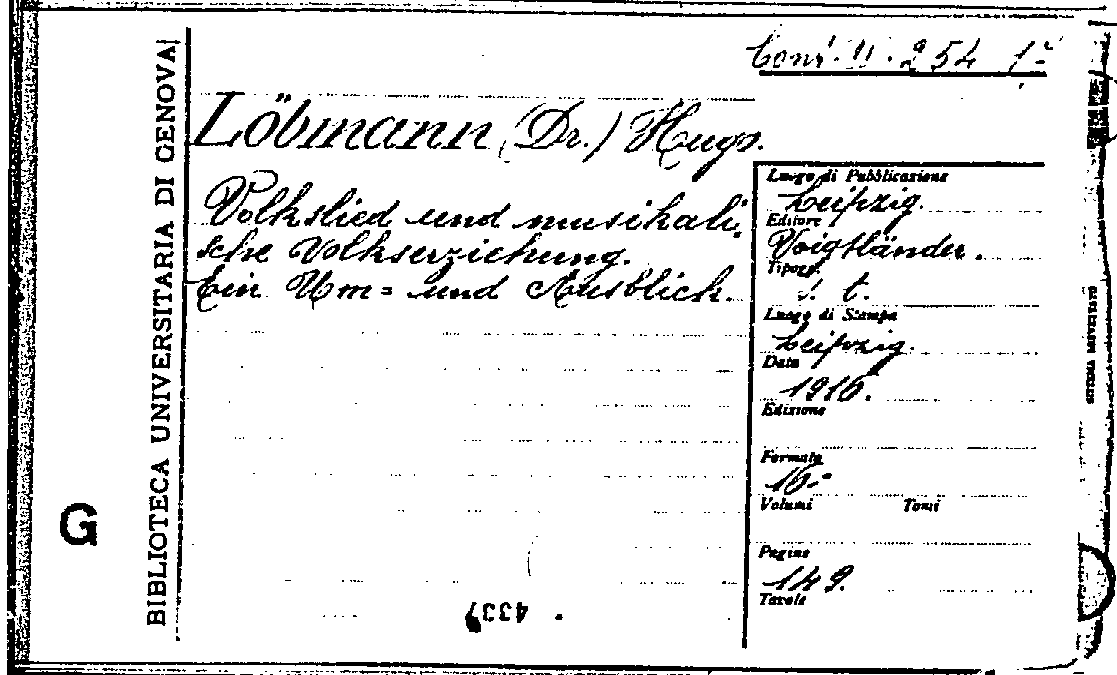 254
Löbmann (Dr.) Hugo.
Volkslied und musikali-
sche Volkserziehung.
Ein Um= und Ausblick.
Luogo di Pubblicazione
Leipzig.
Editore
Voigtländer.
Tipogr.
s. t.
Luogo di Stampa
Leipzig.
Data
1916.
Edizione
Formato
16°
Volumi Tomi
Pagine
149.
Tavole
BIBLIOTECA UNIVERSITARIA DI GENOVA
G
4337